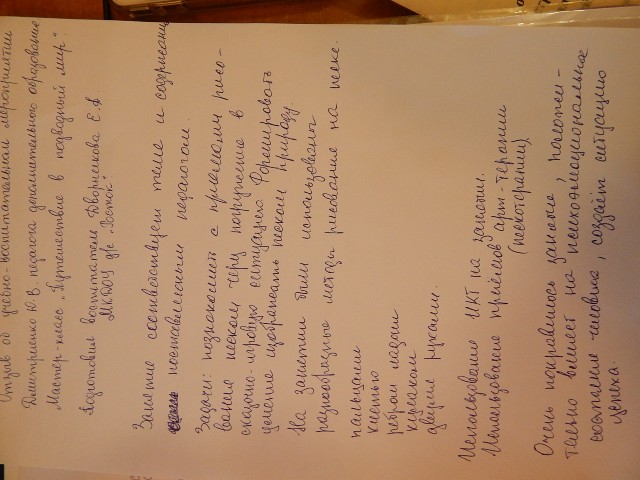 Отзыв об учебно-воспитательном мероприятии
Дмитриенко Ю.В. педагога дополнительного образования
Мастер-класс „Путешествие в подводный мир".
Подготовил воспитатель Дворникова Е.А.
МКДОУ д/с „Росток".
Занятие соответствует теме и содержанию
поставленными педагогом.
Задачи: познакомить с приёмами рисо-
вание песком через погружение в
сказочно-игровую ситуацию. Формировать
умение изображать песком природу.
На занятии были использованы
разнообразные методы рисование на песке.
пальцами
кистью
ребром ладони
кулаком
двумя руками.
Использование ИКТ на занятии.
Использование приёмов арт-терапии
(пескотерапии)
Очень понравилось занятие, положи-
тельно влияет на психоэмоциональное
состояние человека, создаёт ситуацию
успеха.